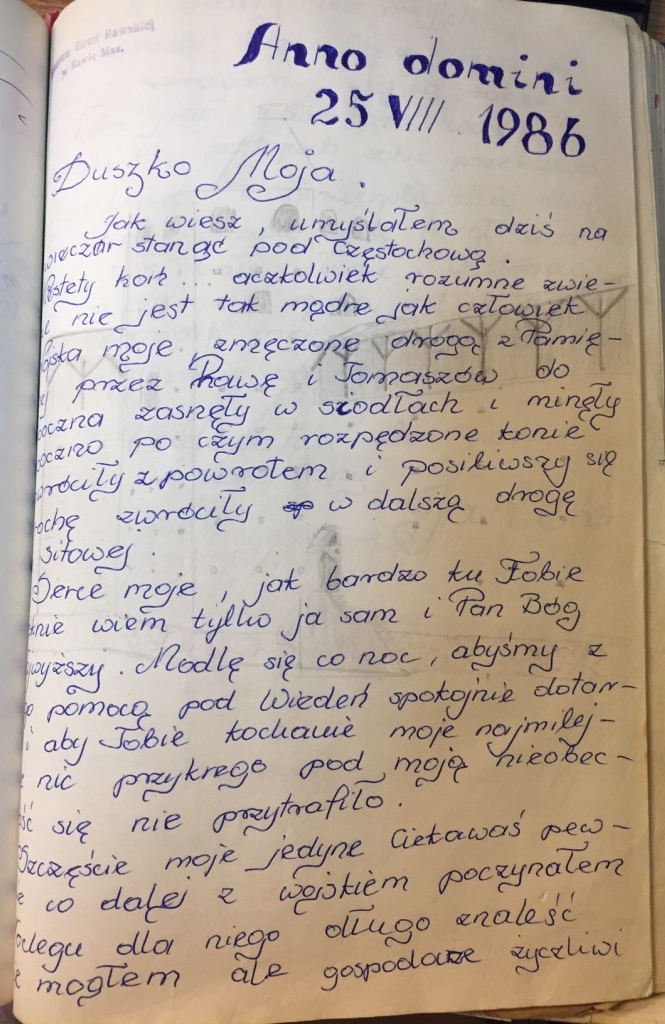 Ziemi Rawskiej
w Rawie Maz.
Anno domini
25 VIII 1986
Duszko Moja.
Jak wiesz, umyślałem dziś na
wieczór stanąć pod Częstochową.
koń... aczkolwiek rozumne zwie-
nie jest tak mądre jak człowiek
moje zmęczone drogą z Pamię-
przez Rawę i Tomaszów do
zasnęły w siodłach i minęły
po czym rozpędzone konie
zpowrotem i posiliwszy się
zwróciły w dalszą drogę
siłowej.
Serce moje, jak bardzo ku Tobie
wiem tylko ja sam i Pan Bóg
Modlę się co noc, abyśmy z
pomocą pod Wiedeń spokojnie dotar-
i aby Tobie kochanie moje najmilej-
nic przykrego pod moją nieobec-
ść się nie przytrafiło.
Szczęście moje jedyne Ciekawaś pew-
co dalej z wojskiem poczynałem
dla niego długo znaleść
mogłem ale gospodarze życzliwi